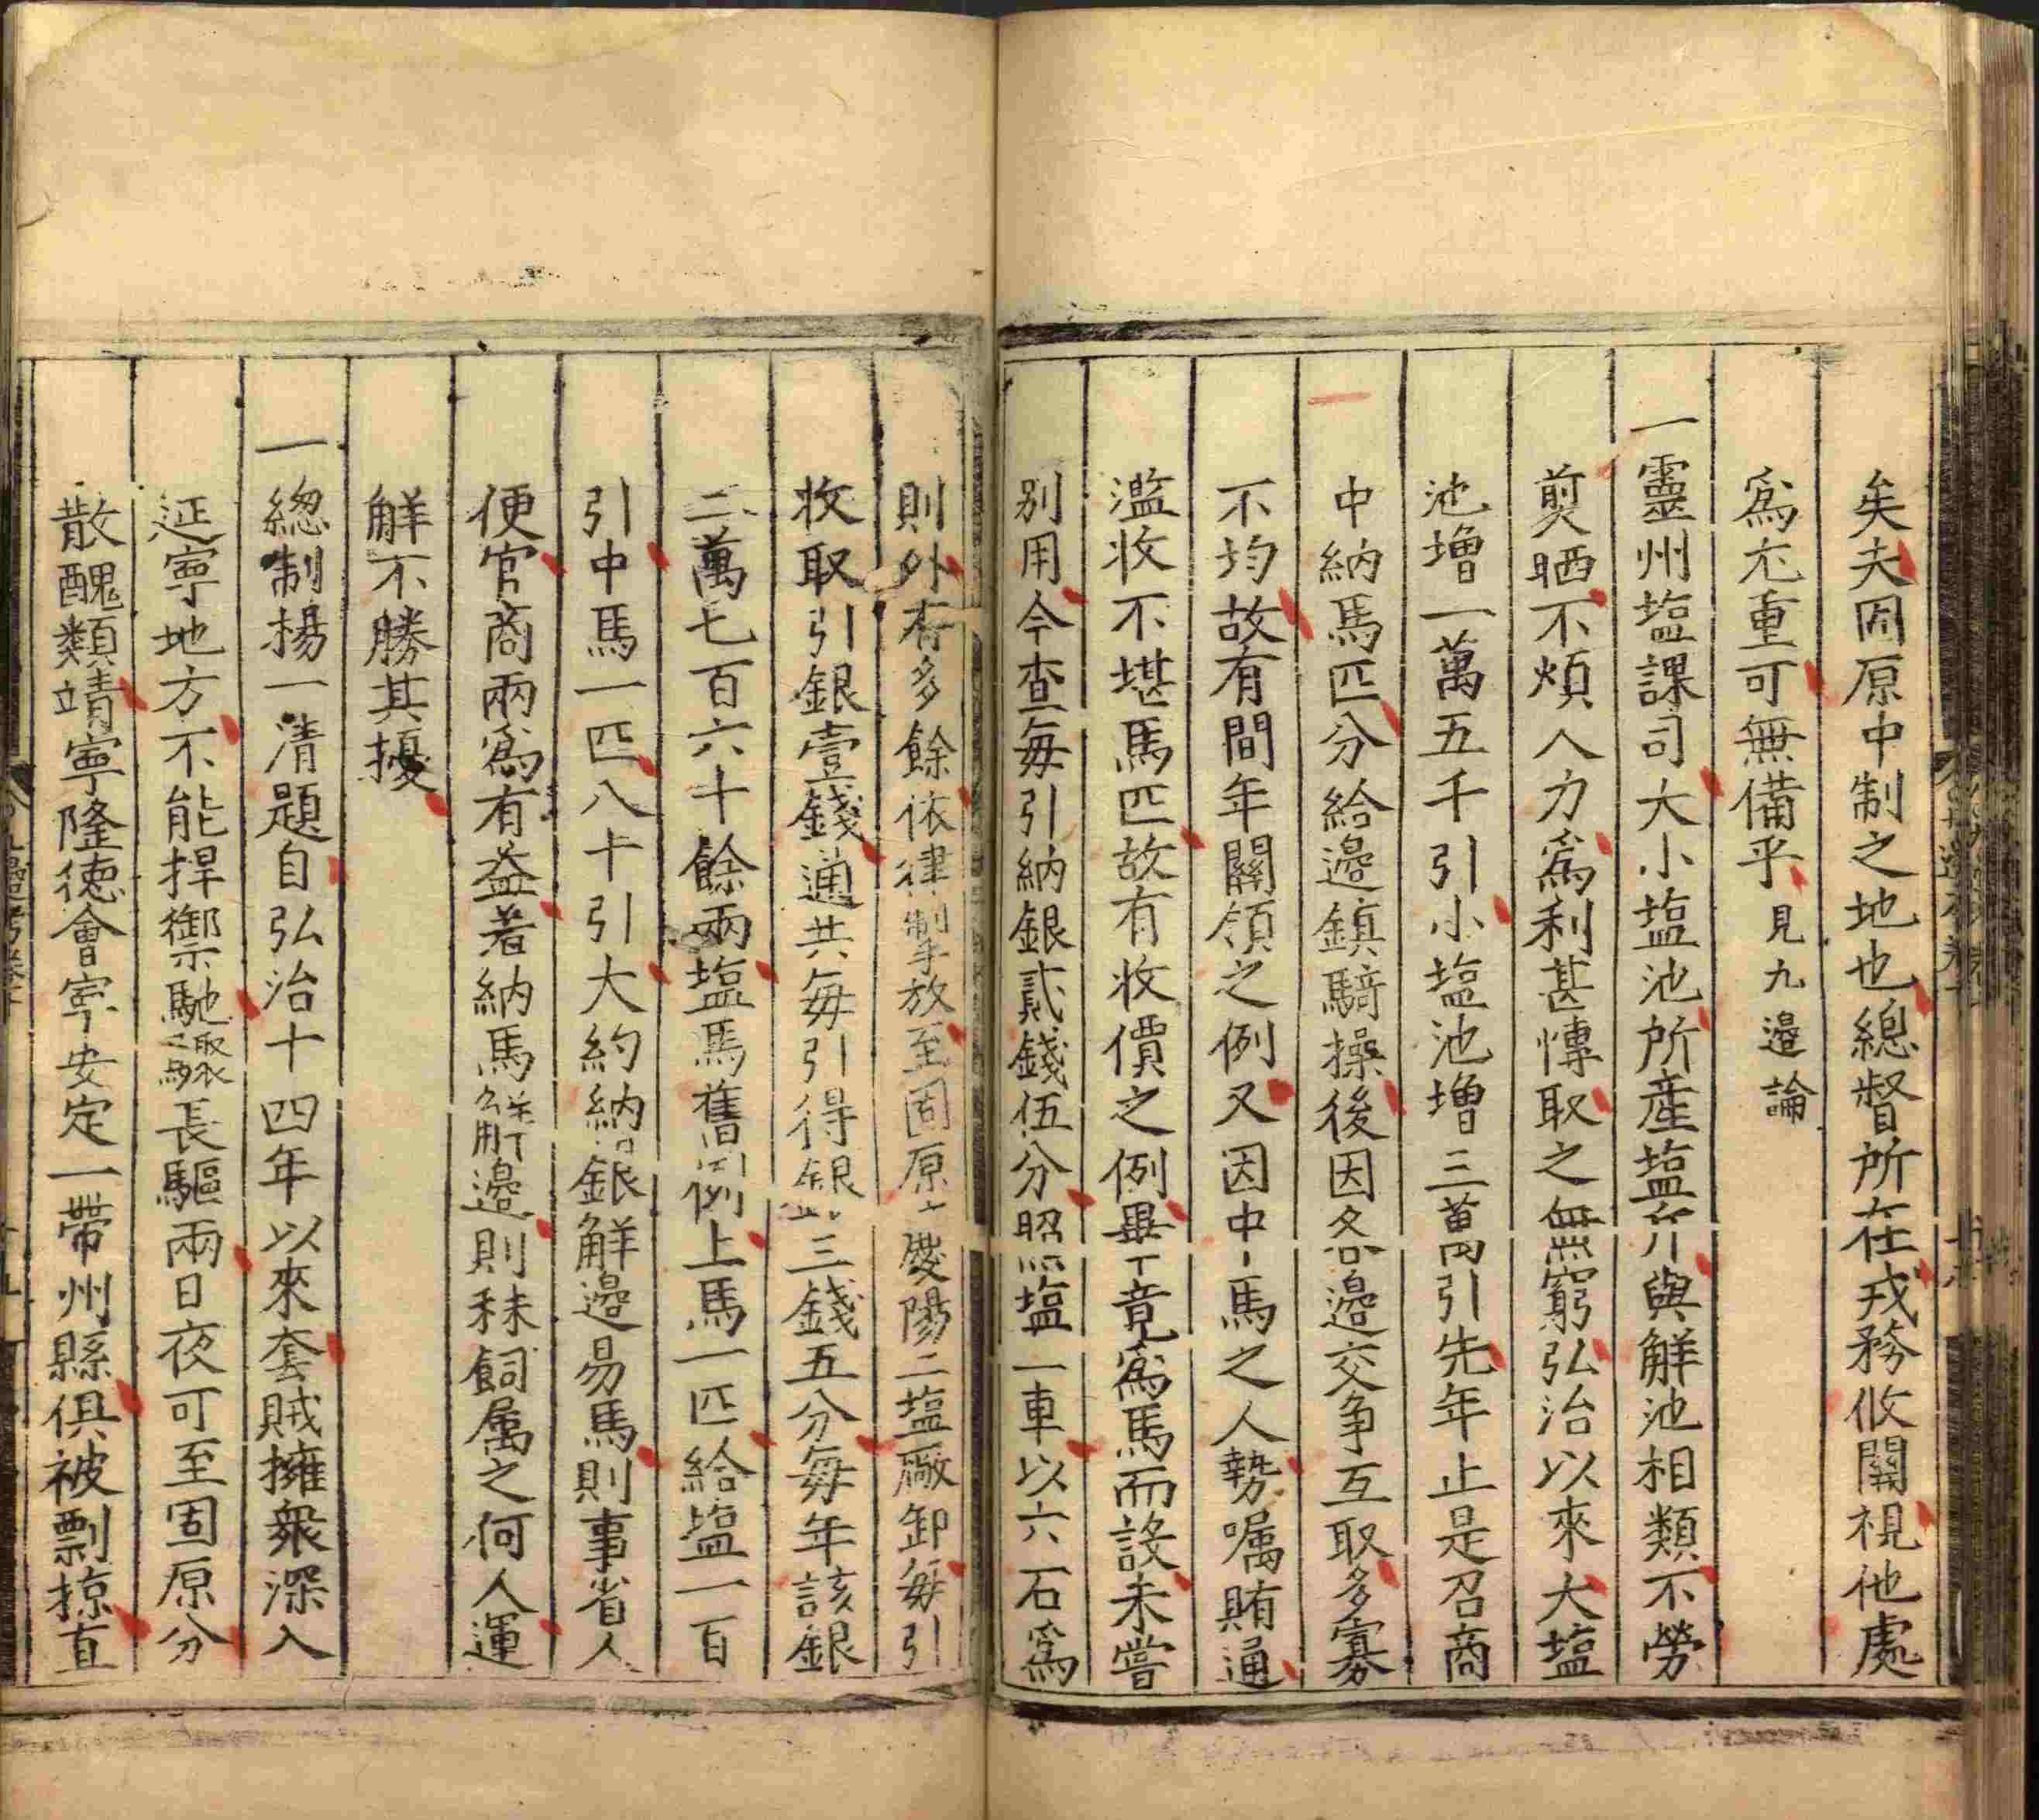 矣夫固原中制之地也總督所在戎務攸關視他處
爲尤重可無備乎見九邊論
一靈州塩課司大小塩池所産塩斤與解池相類不勞
煎晒不煩人力爲利甚慱取之無窮弘治以來大塩
池增一萬五千引小塩池增三萬引先年止是召商
中納馬匹分給邊鎮騎操後因各邊交争互取多寡
不均故有間年關領之例又因中馬之人勢嘱賄通
濫收不堪馬匹故有收價之例畢竟爲馬而設未嘗
别用今查每引納銀貳錢伍分照塩一車以六石爲
則外有多餘依律掣放至固原慶陽二塩厰卸每引
收取引銀壹錢通共每引得銀三錢五分每年該銀
二萬七百六十餘兩塩馬舊例上馬一匹給塩一百
引中馬一匹八十引大約納銀觧邊易馬則事省人
便官商兩爲有益若納馬觧邊則秣飼属之何人運
觧不勝其擾
一總制楊一清題自弘治十四年以來套賊擁衆深入
延寧地方不能捍禦馳驟長驅兩日夜可至固原分
散醜類靖寧隆德會寧安定一帶州縣俱被剽掠直